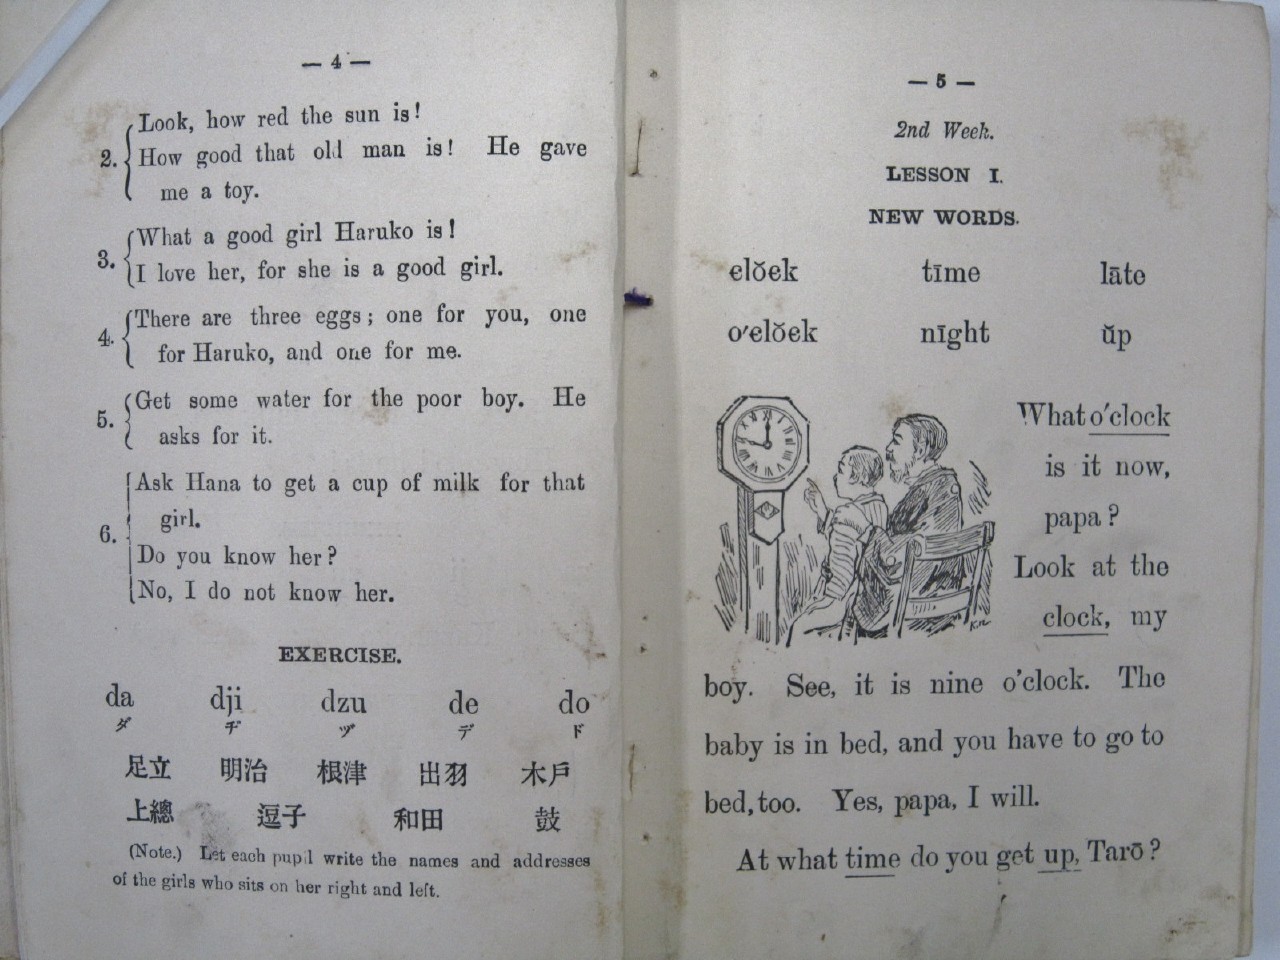 — 4 —
Look, how red the sun is!
2. How good that old man is! He gave
me a toy.
3. What a good girl Haruko is!
I love her, for she is a good girl.
4. There are three eggs; one for you, one
for Haruko, and one for me.
5. Get some water for the poor boy. He
asks for it.
Ask Hana to get a cup of milk for that
girl.
6. Do you know her?
No, I do not know her.
EXERCISE.
da dji dzu de do
ダ ヂ ヅ デ ド
足立 明治 根津 出羽 木戸
上總 逗子 和田 鼓
(Note.) Let each pupil write the names and addresses
of the girls who sits on her right and left.
— 5 —
2nd Week.
LESSON I.
NEW WORDS.
clŏck tīme lāte
o'clŏck nīght ŭp
What o'clock
is it now,
papa?
Look at the
clock, my
boy. See, it is nine o'clock. The
baby is in bed, and you have to go to
bed, too. Yes, papa, I will.
At what time do you get up, Tarō?